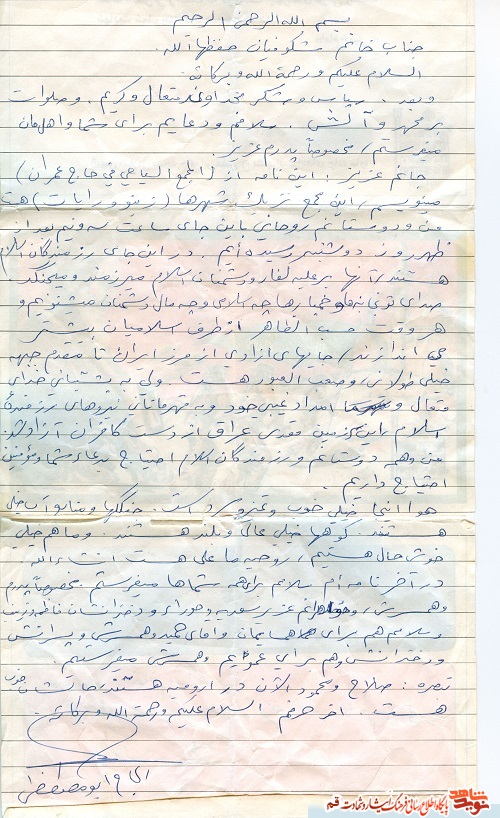 بسم الله الرحمن الرحیم
جناب خانم شکوفیان حفظها الله.
السلام علیکم و رحمة الله و برکاته.
وبعد. سپاس و شکر خداوند متعال و کریم. و صلوات
بر محمد و آلش. سلام و دعایم برای شما و اهل‌مان
میفرستم/ مخصوصاً پدرم عزیز.
خانم عزیز: این نامه از (المجمع السیاحی فی حاج عمران)
مینویسم/ این مجمع نزدیک شهرها (زینو و رایات) هست
من و دوستانم روحانی باین جای ساعت سه و نیم بعد از
ظهر روز دوشنبه رسیده‌ایم. در این جای رزمندگان اسلام
هستند/ آنها بر علیه کفار و دشمنان اسلام میرزمند و میجنگد
صدای توپ‌خانه‌ها و خمپارها چه اسلامی و چه مال دشمنان میشنویم و
هر وقت حسب الظاهر از طرف اسلامیان بیشتر
می اندازند/ جایهای ازادی از مرز ایران تا مقدم جبهه
خیلی طولانی و صعب العبور هست. ولی به پشتیبانی خدای
متعال و امداد غیبی خود و به قهرمانان نیروهای رزمندهٔ
اسلام/ این زمین مقدس عراق از دست کافران آزاد شد
من و همه دوستانم و رزمندگان اسلام احتیاج به دعاء شما و مؤمنین
احتیاج داریم.
هوا اینجا خیلی خوب و تمیز و سرد است. جنگلها و منابع آب خیلی
هستند. کوهها خیلی عالی و بلند هستند. و ما هم خیلی
خوش حال هستیم/ روحیه ما عالی هست انشاءالله
در آخر نامه ام سلام برای همه شماها میفرستم. مخصوصاً پدرم
و همسرش/ و خواهرانم عزیز سعدیه و حوراء و دخترانشان فاطمه و زینب
و سلام هم برای همسایه‌مان و آقای حمید و همسرش و پسرانش
و دخترانش و هم برای عموهایم و همسرش میفرستیم.
تبصره: صلاح و محمود الآن در ارومیه هستند حالشان خوب
هست. اخر حرفم السلام علیکم ورحمة الله و برکاته.
الحاج ابو مصطفى
شاهد
نوید
پایگاه اطلاع رسانی فرهنگ ایثار و شهادت قم